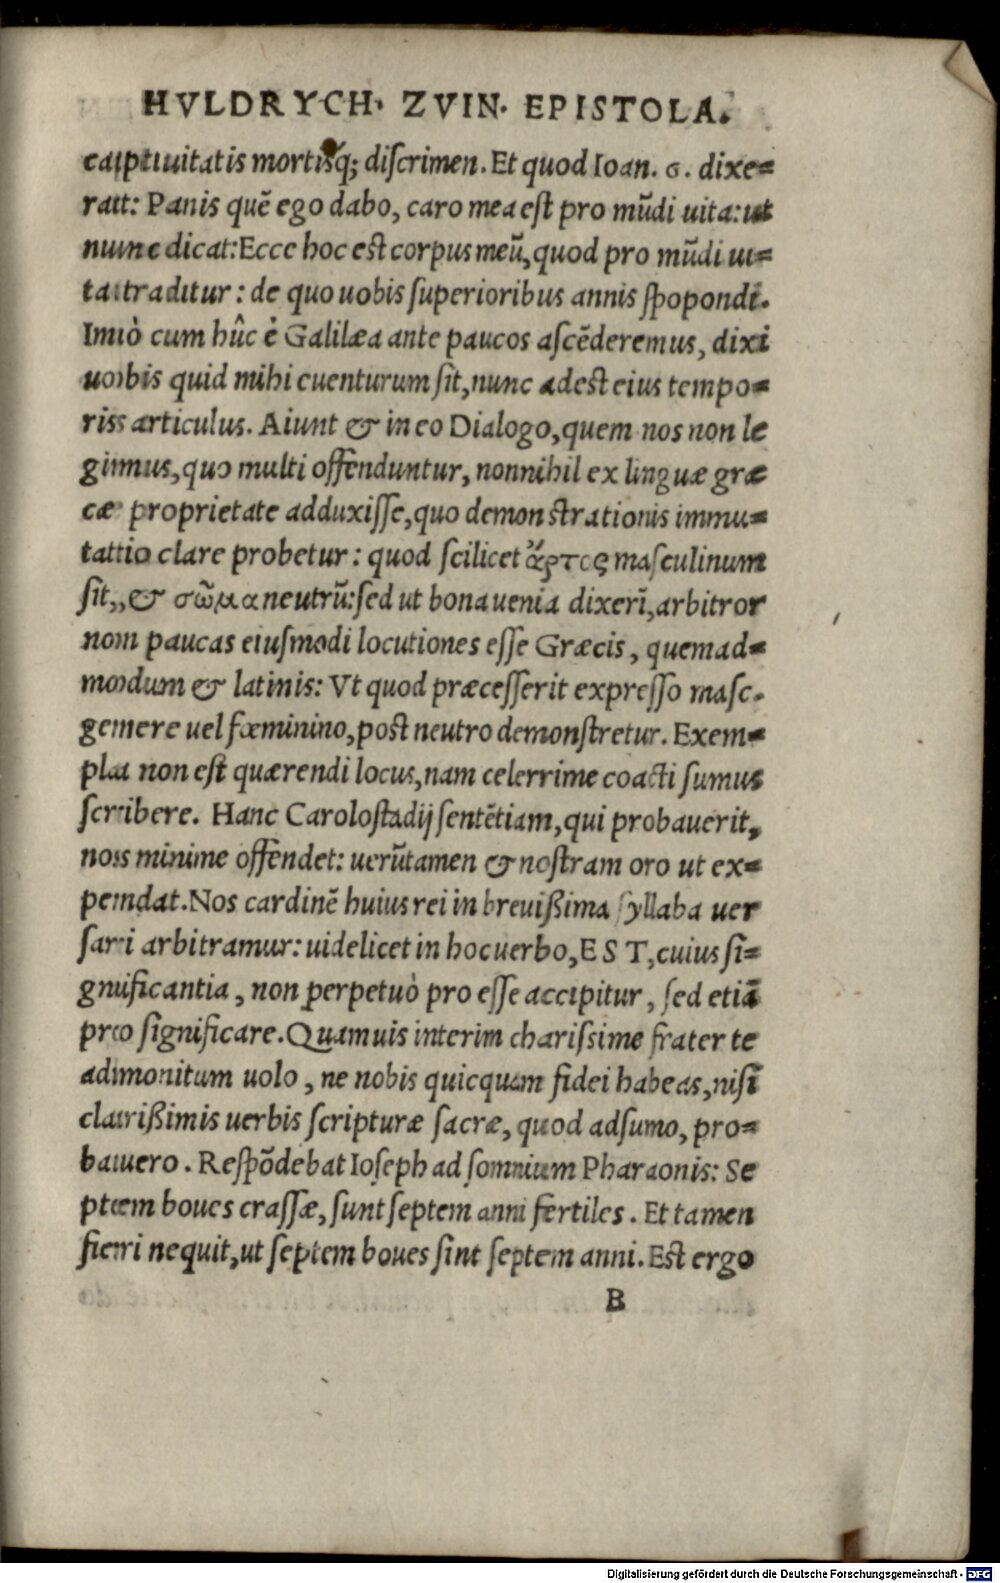 HVLDRYCH· ZVIN· EPISTOLA.
captiuitatis mortisq; diſcrimen. Et quod Ioan. 6. dixe=
rat: Panis quẽ ego dabo, caro mea eſt pro mũdi uita: ut
nunc dicat: Ecce hoc eſt corpus meũ, quod pro mũdi ui=
ta traditur: de quo uobis ſuperioribus annis ſpopondi.
Imò cum hûc è Galilæa ante paucos aſcẽderemus, dixi
uobis quid mihi euenturum ſit, nunc adeſt eius tempo=
ris articulus. Aiunt & in eo Dialogo, quem nos non le
gimus, quo multi offenduntur, nonnihil ex linguæ græ
cæ proprietate adduxiſſe, quo demonſtrationis immu=
tatio clare probetur: quod ſcilicet ἄρτος maſculinum
ſit, & σῶμα neutrũ: ſed ut bona uenia dixerĩ, arbitror
nom paucas eiuſmodi locutiones eſſe Græcis, quemad=
modum & latinis: Vt quod præceſſerit expreſſo maſc.
genere uel fœminino, poſt neutro demonſtretur. Exem=
pla non eſt quærendi locus, nam celerrime coacti ſumus
ſcribere. Hanc Caroloſtadij ſentẽtiam, qui probauerit,
nos minime offendet: uerũtamen & noſtram oro ut ex=
pendat. Nos cardinẽ huius rei in breuißima ſyllaba uer
ſari arbitramur: uidelicet in hoc uerbo, EST, cuius ſi=
gnificantia, non perpetuò pro eſſe accipitur, ſed etiã
pro ſignificare. Quamuis interim chariſsime frater te
admonitum uolo, ne nobis quicquam fidei habeas, niſi
clarißimis uerbis ſcripturæ ſacræ, quod adſumo, pro=
bauero. Reſpõdebat Ioſeph ad ſomnium Pharaonis: Se
ptem boues craſſæ, ſunt ſeptem anni fertiles. Et tamen
fieri nequit, ut ſeptem boues ſint ſeptem anni. Eſt ergo
B
Digitalisierung gefördert durch die Deutsche Forschungsgemeinschaft - DFG